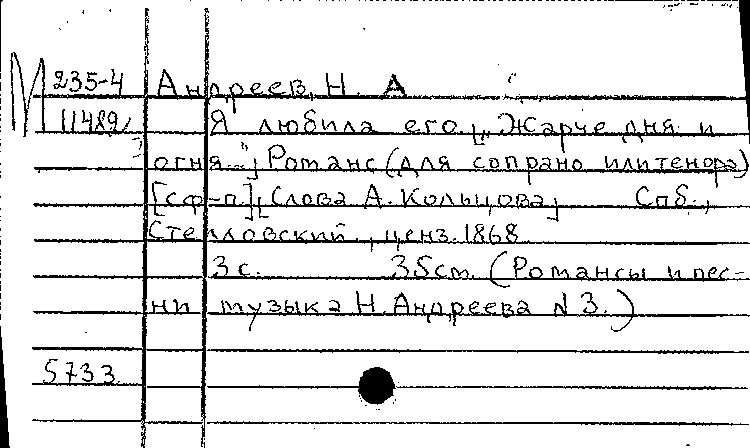 М 235-4 Андреев, Н. А
11489 Я любила его. [„Жарче дня и
огня..."] Романс (для сопрано или тенора)
[с ф-п]. [Слова А. Кольцова] Спб.,
Стелловский, ценз. 1868.
3 с. 35 см. (Романсы и пес-
ни музыка Н. Андреева № 3.)
5733